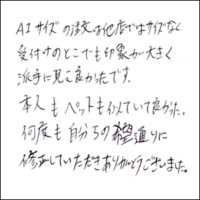 A1サイズの注文は他店ではサイズなく
受付けのとこでも印象が大きく
派手に見こ良かったです。
本人もペットも似ていて良かった。
何度も自分らの希望通りに
修正していただきありがとうございました。